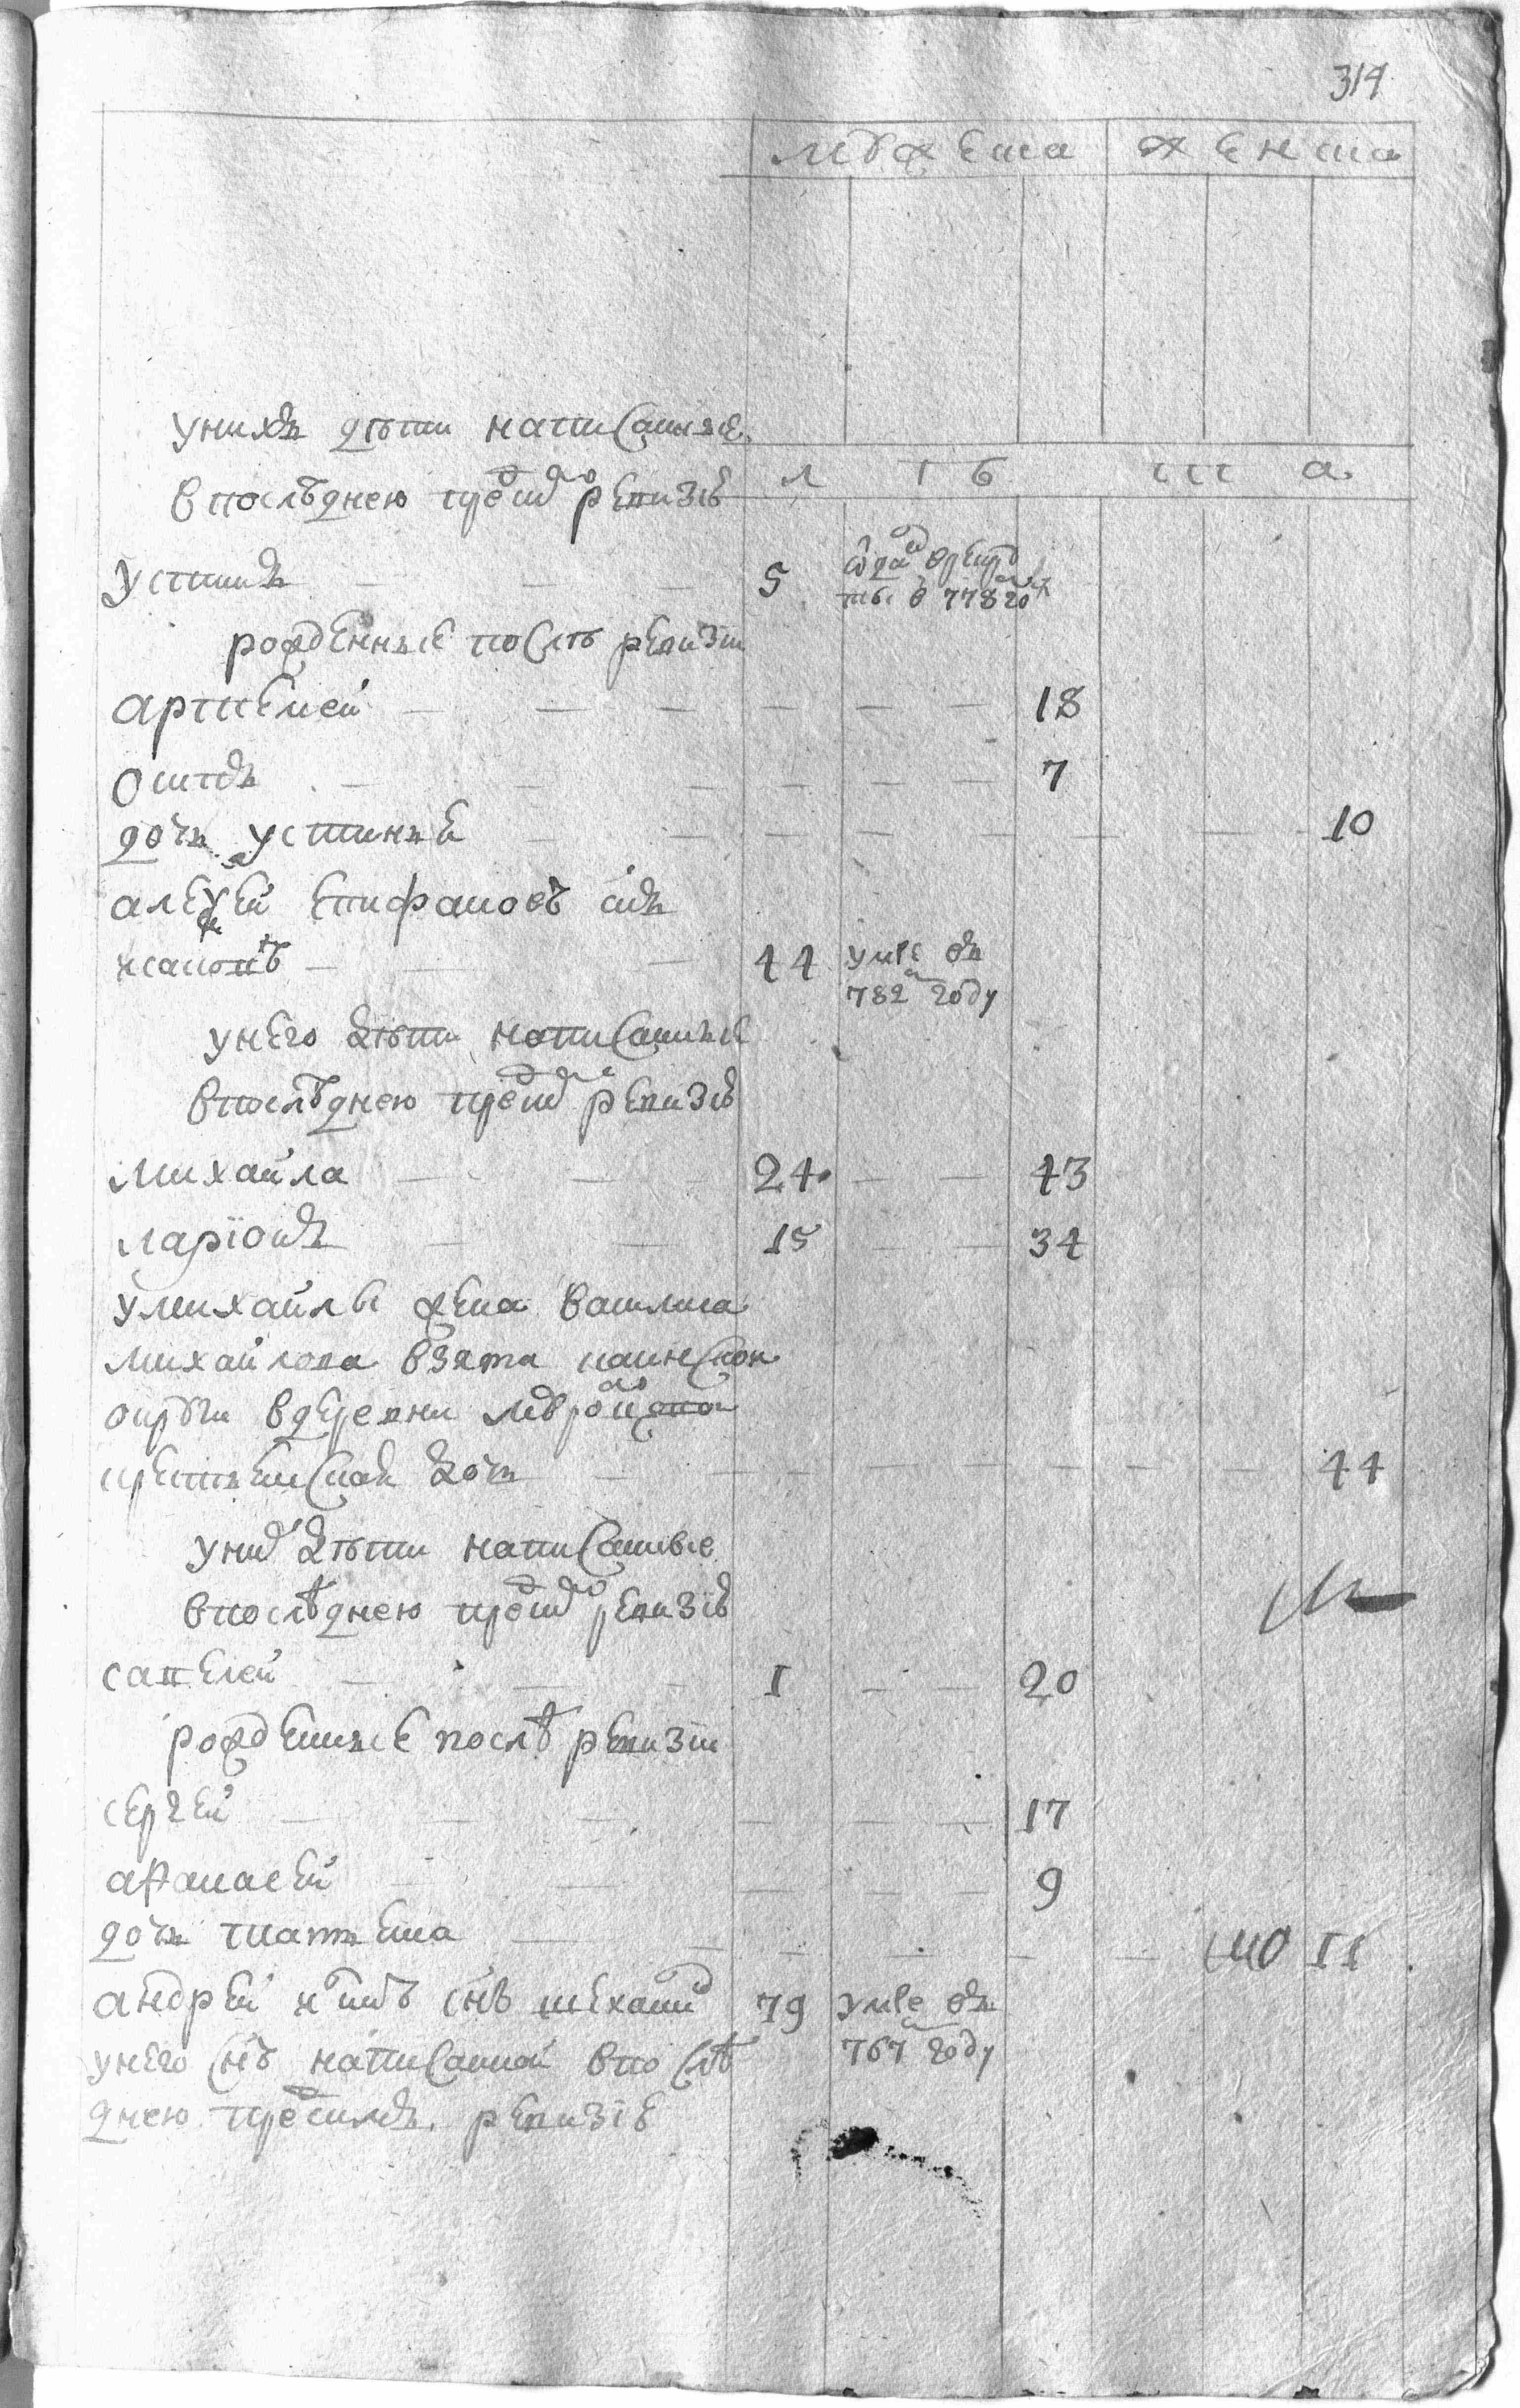 314
мужеска женска
унихъ дѣти написанные
л ѣ т а
впослѣднею пред ревизiѣ
устинъ 5 ѡтдан врекру
ты в 778 го
рожденные послѣ ревизiи
артемей 18
осипъ 7
дочь устинья 10
алеѯей епифановъ снъ
44 умре въ
782 году
унего дѣти написанные
впослѣднею пред ревизiѣ
михайла 24 43
ларïонъ 15 34
умихайлы жена василиса
михайлова взята каинскои
округи вдеревни
крестьянская дочь 44
уних дѣти написанные
впослѣднею пред ревизiѣ
савелей 1 20
рожденные послѣ ревизiи
сергей 17
аѳанасей 9
дочь татьяна 11
андрей снъ 79 умре въ
767 году
унего снъ написанной впослѣ
днею пред ревизiе